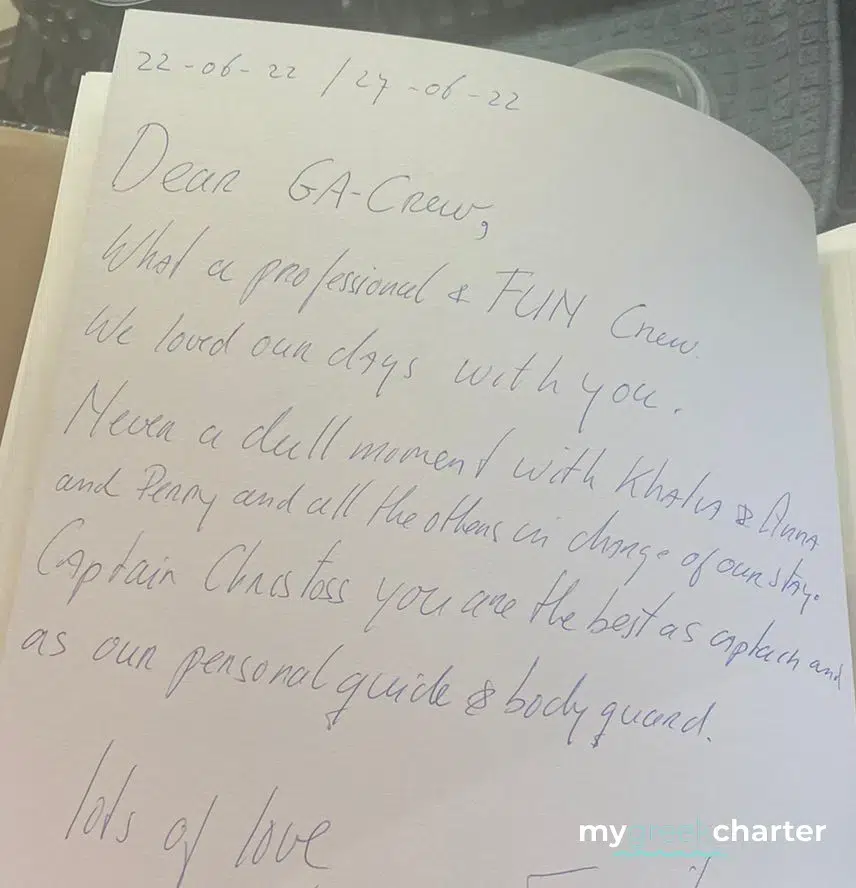 22-06-22 / 27-06-22
Dear GA-Crew,
What a professional & FUN Crew.
We loved our days with you.
Never a dull moment with & Anna
and Penny and all the others in charge of our stay.
Captain Christoss you are the best as captach and
as our personal guide & body guard.
lots of love
mygreekcharter